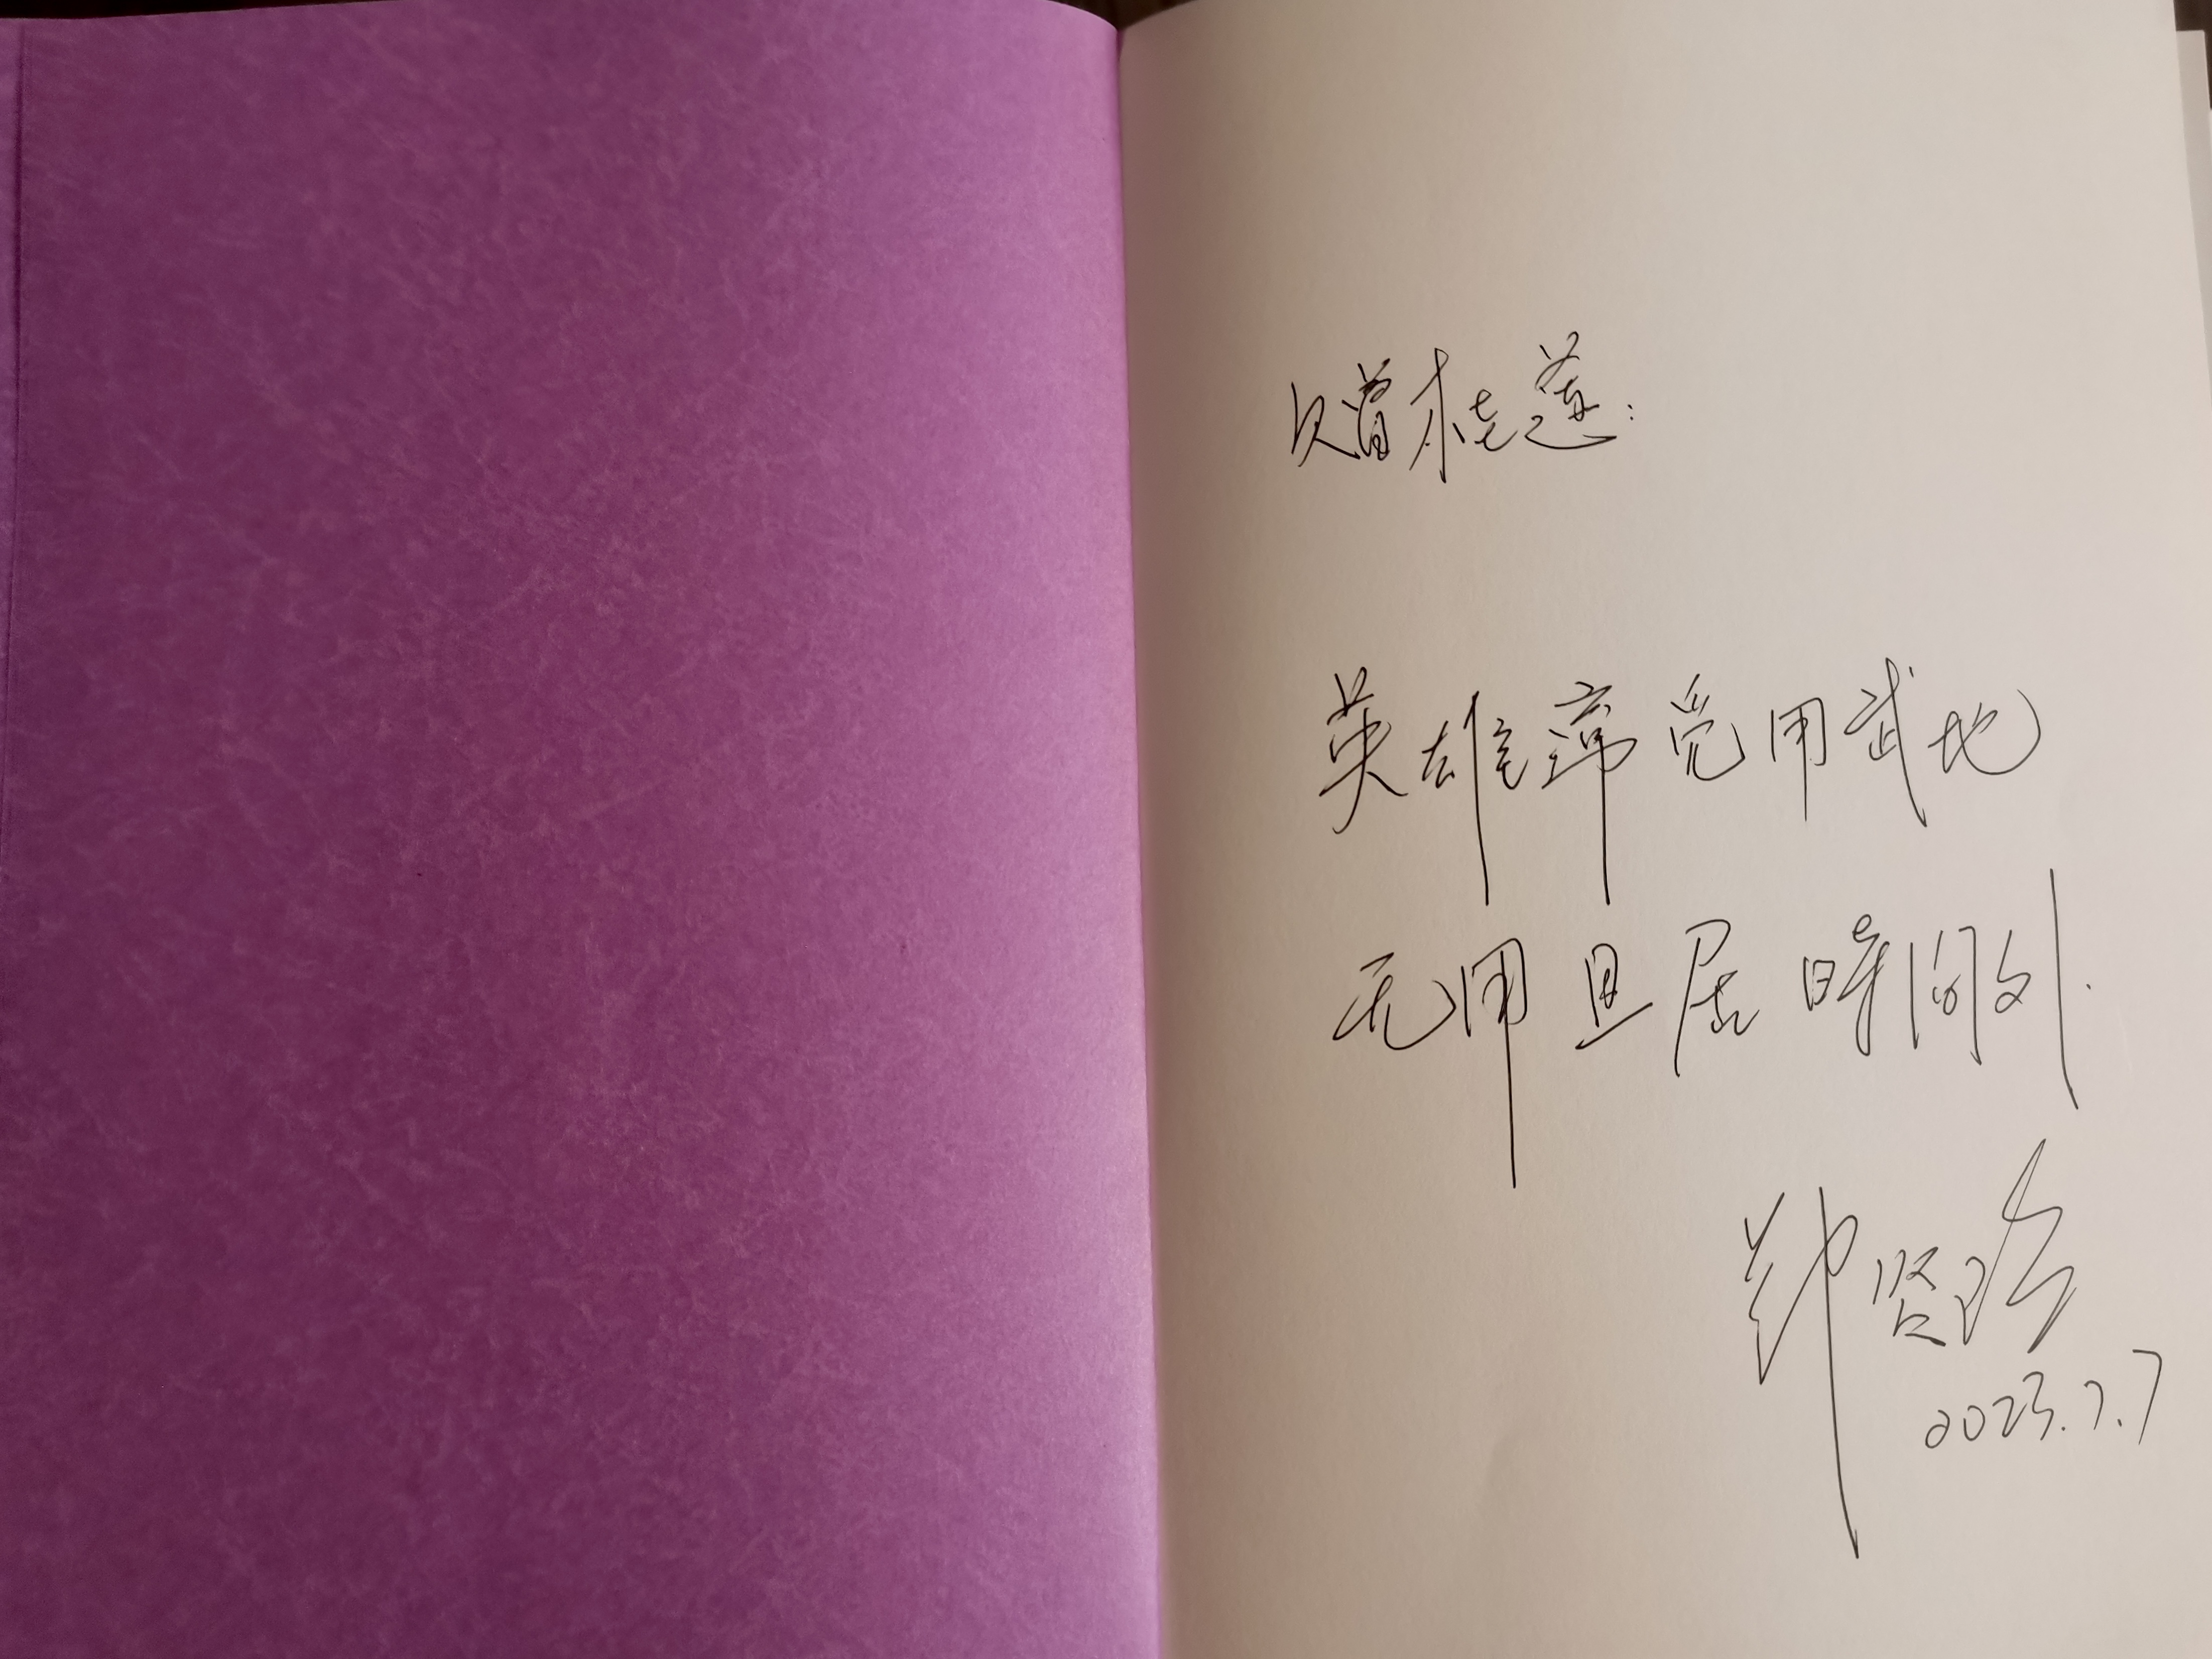 赠桂莲：
英雄谛觉用武地
无用且居時间外.
郑贤
2023.7.7